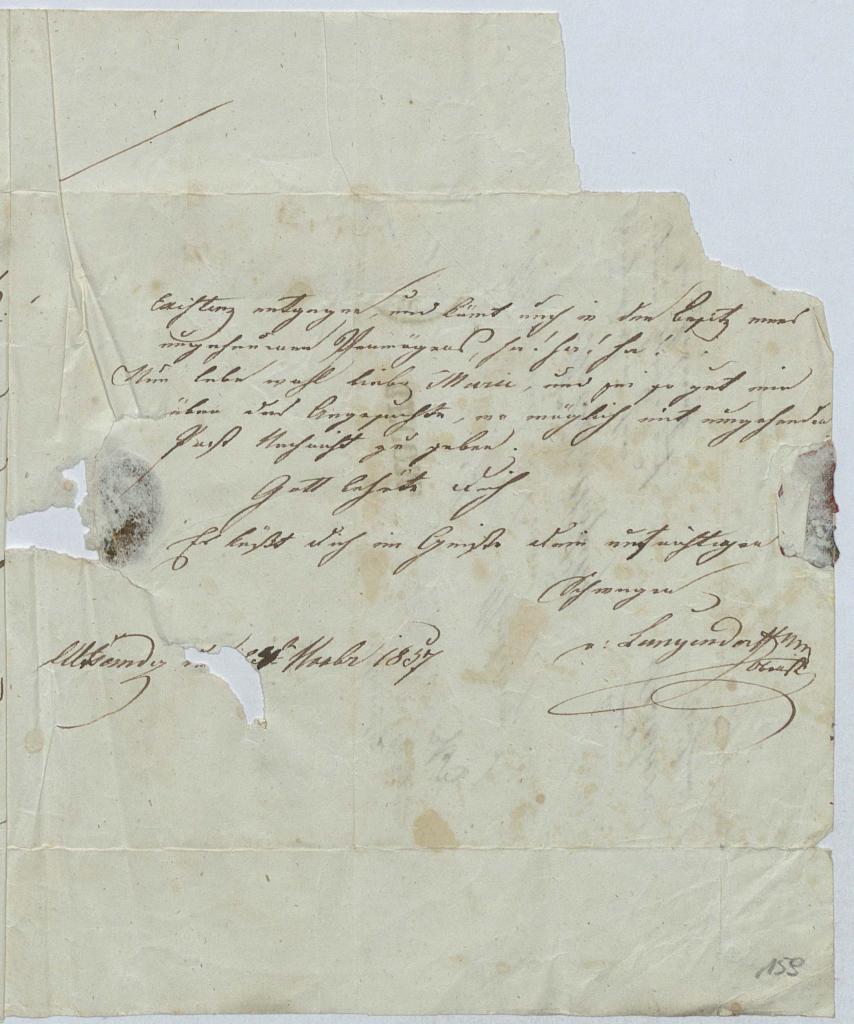 Existenz entgegen, und kömt noch in den Besitz eines
ungeheueren Vermögens, ha! ha! ha!
Nun lebe wohl liebe Marie, und sei so gut mir
über das Angesuchte, wo möglich mit umgehender
Post Nachricht zu geben.
Gott behüte dich
Es küßt dich im Geiste dein aufrichtiger
Schwager
v: Langendorff
Oberst
Altsandez 1837
159